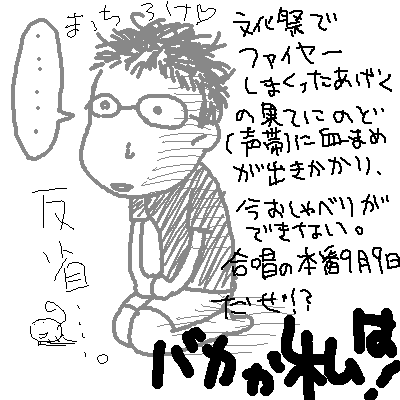 まちろけ♡
文化祭で
ファイヤー
しまくったあげく
の果てにのど
(声帯)に血まめ
が出きかかり、
今おしゃべりが
できない。
合唱の本番9月9日
だぜ!?
バカか私は!
反省